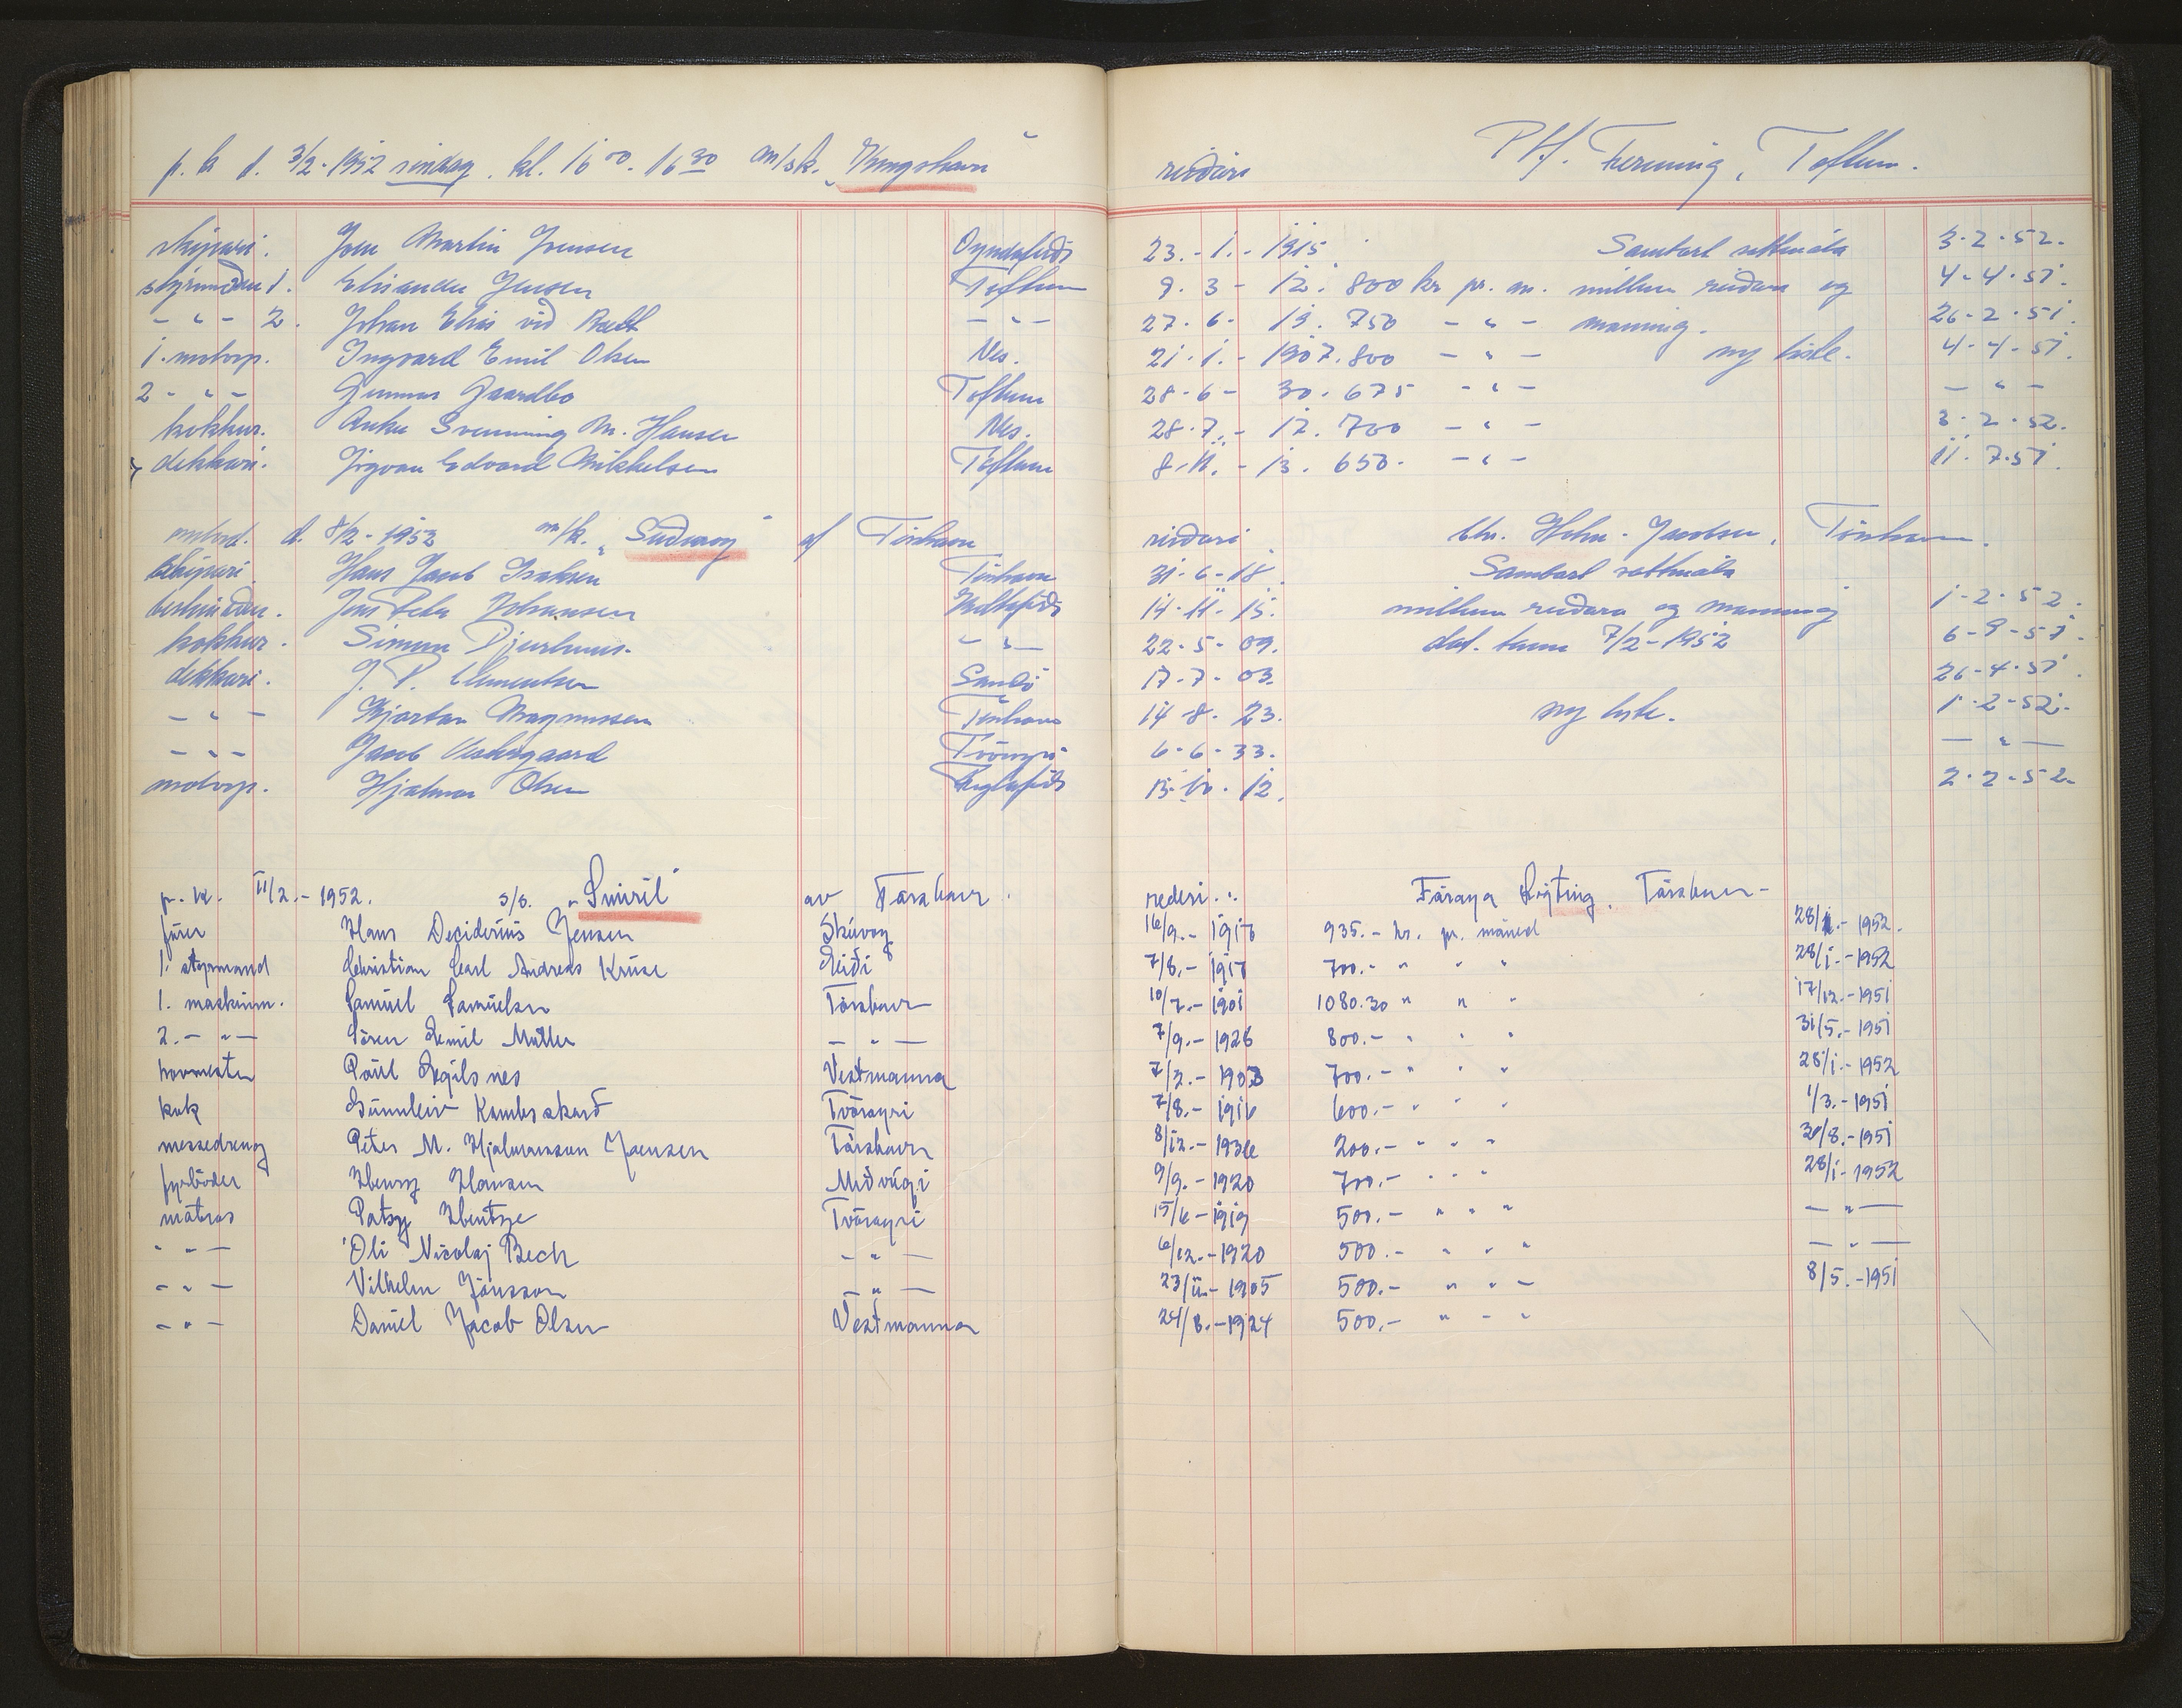 p. k d. 3/2-1952 sindag. kl. 16 00 - 16 30 m/sk. „Kongshavn" reiðari P/f. Ferming, Toftum.
skipari. Joen Martin Joensen Oyndafirði 23.-1.-1915. Sambært sáttmála 3-2-52.
stýrimaður 1. Elieander Jensen Toftum 9.3-12. 800 kr pr. m. millum reiðara og 4-4-51.
- " - 2. Johan Elias við Rætt - " - 27-6-19. 750 - " - manning. 26-2-51.
1. motorp. Ingvard Emil Olsen Nes. 21-1.-1907. 800 - " - ny liste. 4-4-51.
2 - " - Gunnar Gaardbo Toftum 28-6-30. 675 - " - - " -
kokkur. Anker Svenning M. Hansen Nes. 28.7.-12. 700 - " - 3-2-52.
dekkari. Jógvan Edvard Mikkelsen Toftum 8.11.-13. 650. - " - 11.7.51.
d. 8/2-1952 m/k. „Suduroy" af Tórshavn reiðari Chr. Holm-Jacobsen, Tórshavn.
skipari. Hans Jacob Isaksen Tórshavn 31-6-18. Sambært sáttmála
bestimaður. Jens Peter Johansen 14-11-15. millum reiðara og manning 1-2-52.
kokkur. Simun Djurhuus. - " - 22-5-09. dat. Havn 7/2-1952 6-9-51.
dekkari. J. P. Clementsen Sandi 17-7-03. 26-4-51.
- " - Kjartan Magnussen Tórshavn 14-8-23. ny liste. 1-2-52.
- " - Jacob Vestergaard Tvöroyri 6-6-33. - " -
motorp. Hjalmar Olsen Fuglafirði 13-10-12. 2-2-52.
p. k. 11/2.-1952. s/s. „Smiril" av Tórshavn. rederi.. Föroya Lögting, Tórshavn-
förer Hans Deciderius Jensen Skúvoy 16/9.-1916 935.- kr. pr. måned 28/1.-1952.
1. styrmand Christian Carl Andreas Kruse Eiði 7/8.-1917 700.- " " " 28/1.-1952
1. maskinm. Samuel Samuelsen Tórshavn 10/7.-1901 1080.30 " " " 17/12.-1951
2.- " - Sören Emil Müller - " - 7/9.-1926 800.- " " " 31/5.-1951
hovmester Poul Egilsnes Vestmanna 7/3.-1903 700.- " " " 28/1.-1952
kok Gunnleiv Kambsskarð Tvöroyri 7/8.-1916 600.- " " " 1/3.-1951
messedreng Peter M. Hjalmarsson Joensen Tórshavn 8/12.-1936 200.- " " " 30/8.-1951
fyrböder Henry Hansen Miðvági 9/9.-1920 700.- " " " 28/1-1952
matros Patsy Hentze Tvöroyri 15/6-1919 500.- " " " - " -
- " - Óli Nicolaj Bech - " - 6/12.-1920 500.- " " " - " -
- " - Vilhelm Jónsson - " - 23/11.-1905 500.- " " - 8/5.-1951
- " - Daniel Jacob Olsen Vestmanna 24/8.-1924 500.- " - "